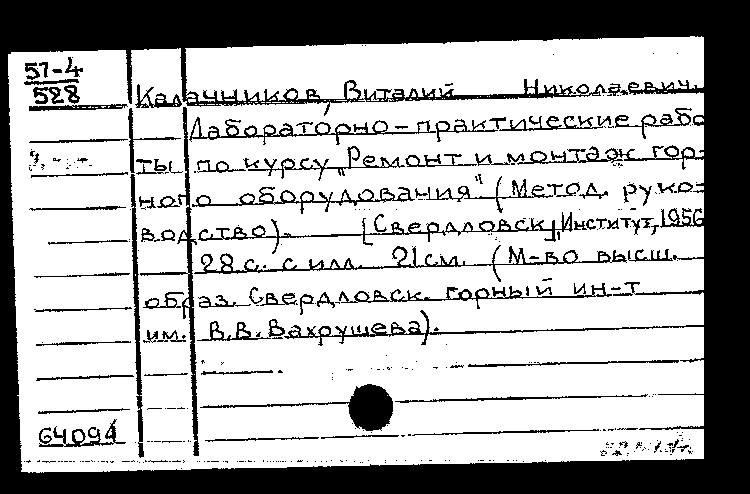 57-4
528
Калачников, Виталий Николаевич.
Лабораторно-практические рабо
ты по курсу „Ремонт и монтаж гор-
ного оборудования" (Метод. руко-
водство). [Свердловск], Институт, 1956
28 с. с илл. 21 см. (М-во высш.
образ. Свердловск. горный ин-т
им. В.В. Вахрушева).
64094